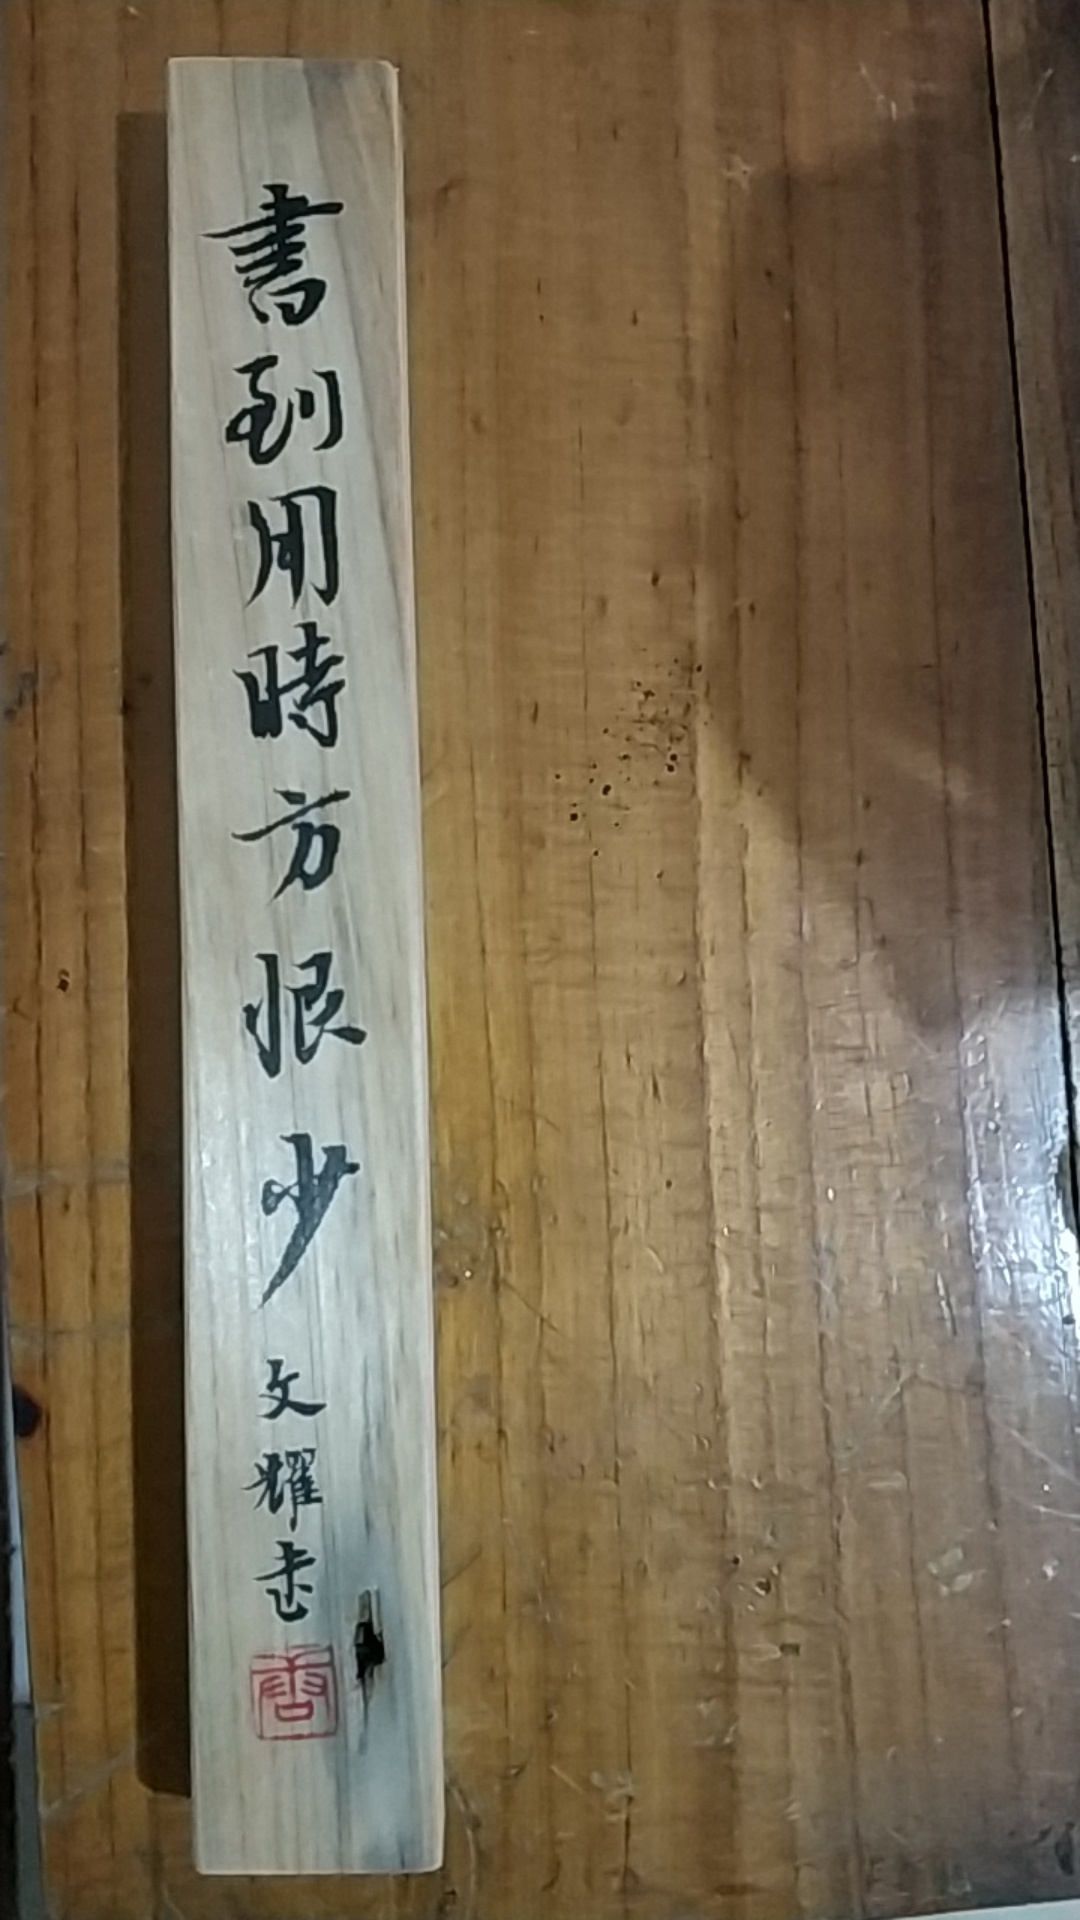 書到用時方恨少
文耀书